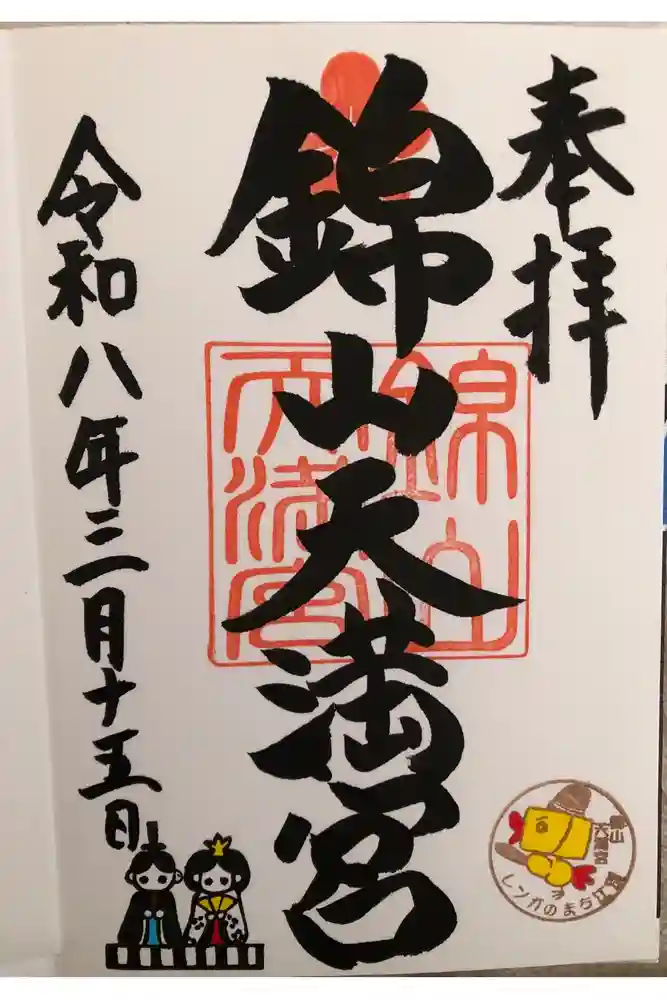 奉拝
錦山天満宮
錦山
天満宮
令和八年三月十五日
錦山
天満宮
レンガのまち江別